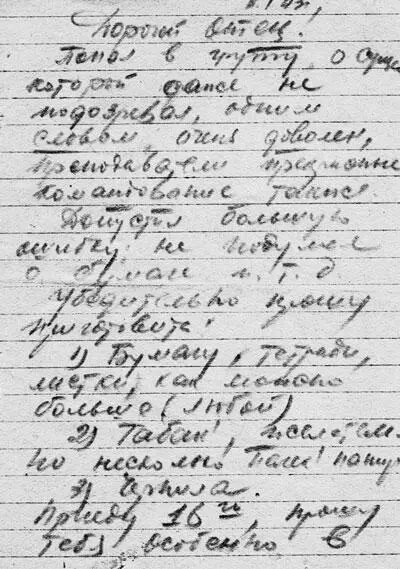 Дорогой отец!
Попал в группу, о сущес
которой даже не
подозревал, одним
словом, очень доволен,
преподаватели прекрасные
командование также.
Допустил большую
ошибку не подумал
о бумаге и. т. д.
Убедительно прошу
приготовить:
1) Бумагу, тетради,
листки, как можно
больше (любой)
2) Табак, желательн
но несколько пачек
3) Чернила.
Приеду 16 го, прошу
тебя особенно в